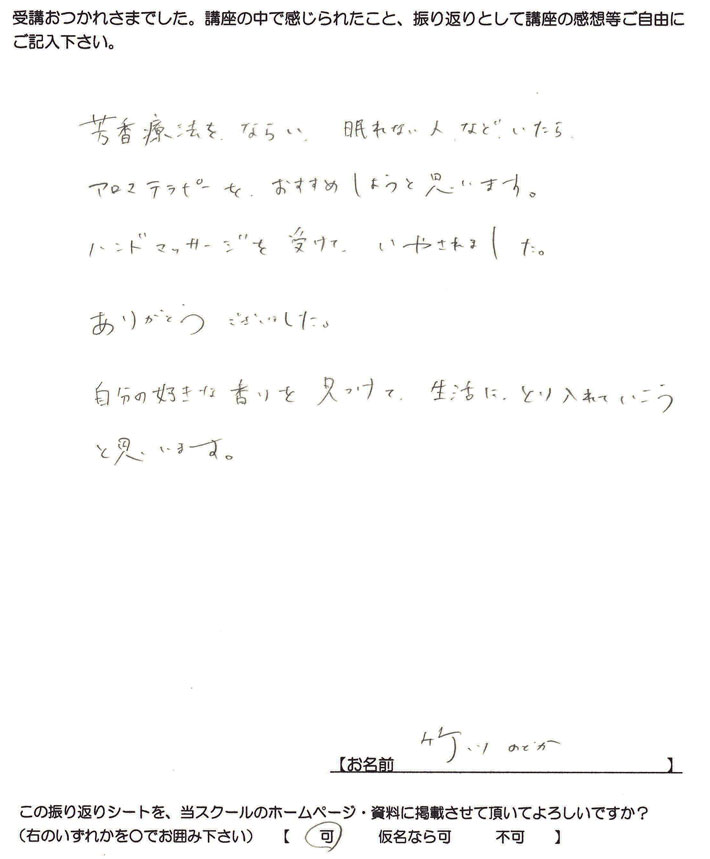 受講おつかれさまでした。講座の中で感じられたこと、振り返りとして講座の感想等ご自由に
ご記入下さい。
芳香療法を、ならい、眠れない人、など、いたら、
アロマテラピーを、おすすめしようと思います。
ハンドマッサージを受けて、いやされました。
ありがとうございました。
自分の好きな香りを見つけて、生活に、とり入れていこう
と思います。
【お名前 竹 のどか 】
この振り返りシートを、当スクールのホームページ・資料に掲載させて頂いてよろしいですか？
（右のいずれかを〇でお囲み下さい） 【 可 仮名なら可 不可 】